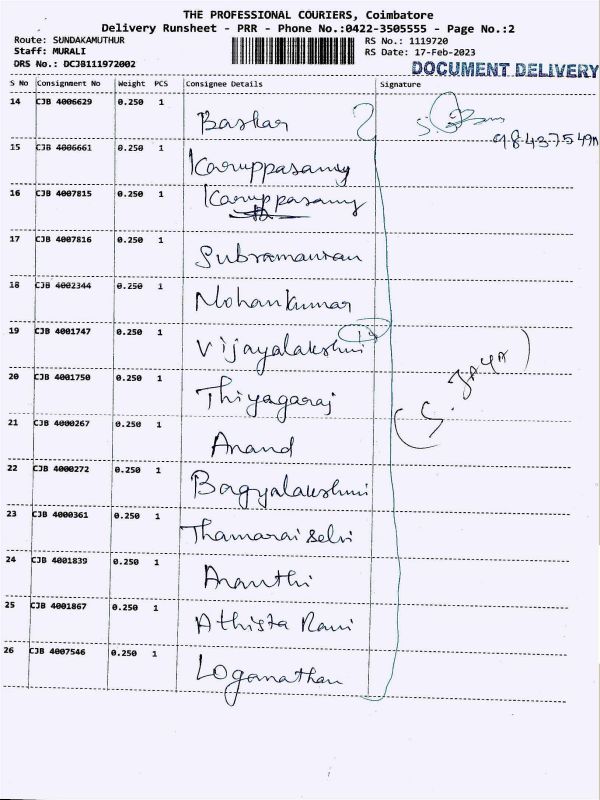 THE PROFESSIONAL COURIERS, Coimbatore
Delivery Runsheet - PRR - Phone No.:0422-3505555 - Page No.:2
Route: SUNDAKAMUTHUR RS No.: 1119720
Staff: MURALI RS Date: 17-Feb-2023
DRS No.: DCJB111972002 DOCUMENT DELIVERY
S No Consignment No Weight PCS Consignee Details Signature
14 CJB 4006629 0.250 1 Baskar
15 CJB 4006661 0.250 1 Karuppasamy
16 CJB 4007815 0.250 1 Karuppasamy
17 CJB 4007816 0.250 1 Subramanian
18 CJB 4002344 0.250 1 Mohankumar
19 CJB 4001747 0.250 1 Vijayalakshmi
20 CJB 4001750 0.250 1 Thiyagaraj (S. JAYA)
21 CJB 4000267 0.250 1 Anand
22 CJB 4000272 0.250 1 Bagyalakshmi
23 CJB 4000361 0.250 1 Thamarai selvi
24 CJB 4001839 0.250 1 Ananthi
25 CJB 4001867 0.250 1 Athista Rani
26 CJB 4007546 0.250 1 Loganathan